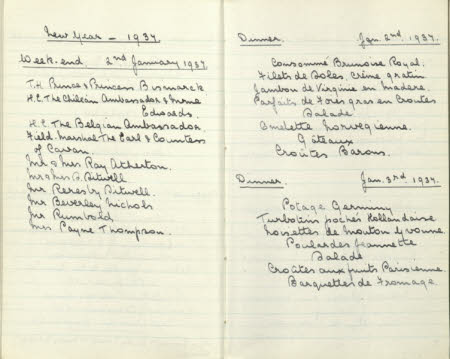 New Year – 1937.
Week-end. 2nd January 1937.
T.H. Prince & Princess Bismarck
H.E. The Chilean Ambassador & Mme
Edwards.
H.E. The Belgian Ambassador.
Field-Marshal The Earl & Countess
of Cavan.
Mr & Mrs Ray Atherton.
Mr & Mrs S. Sitwell
Mr Reresby Sitwell.
Mr Beverley Nichols
Mr Rumbold
Mrs Payne Thompson.
Dinner. Jan. 2nd 1937.
Consommé Brunoise Royal.
Filets de Soles, Crème gratin
Jambon de Virginie en Madère.
Parfaits de Foies gras en Croûtes
Salade
Omelette Norvegienne.
Gâteaux
Croûtes Barons.
Dinner. Jan. 3rd 1937.
Potage Germiny
Turbotins pochés Hollandaise
Noisettes de Mouton Yvonne.
Poulardes Jeannette
Salade
Croûtes aux fruits Parisienne
Barquettes de Fromage.